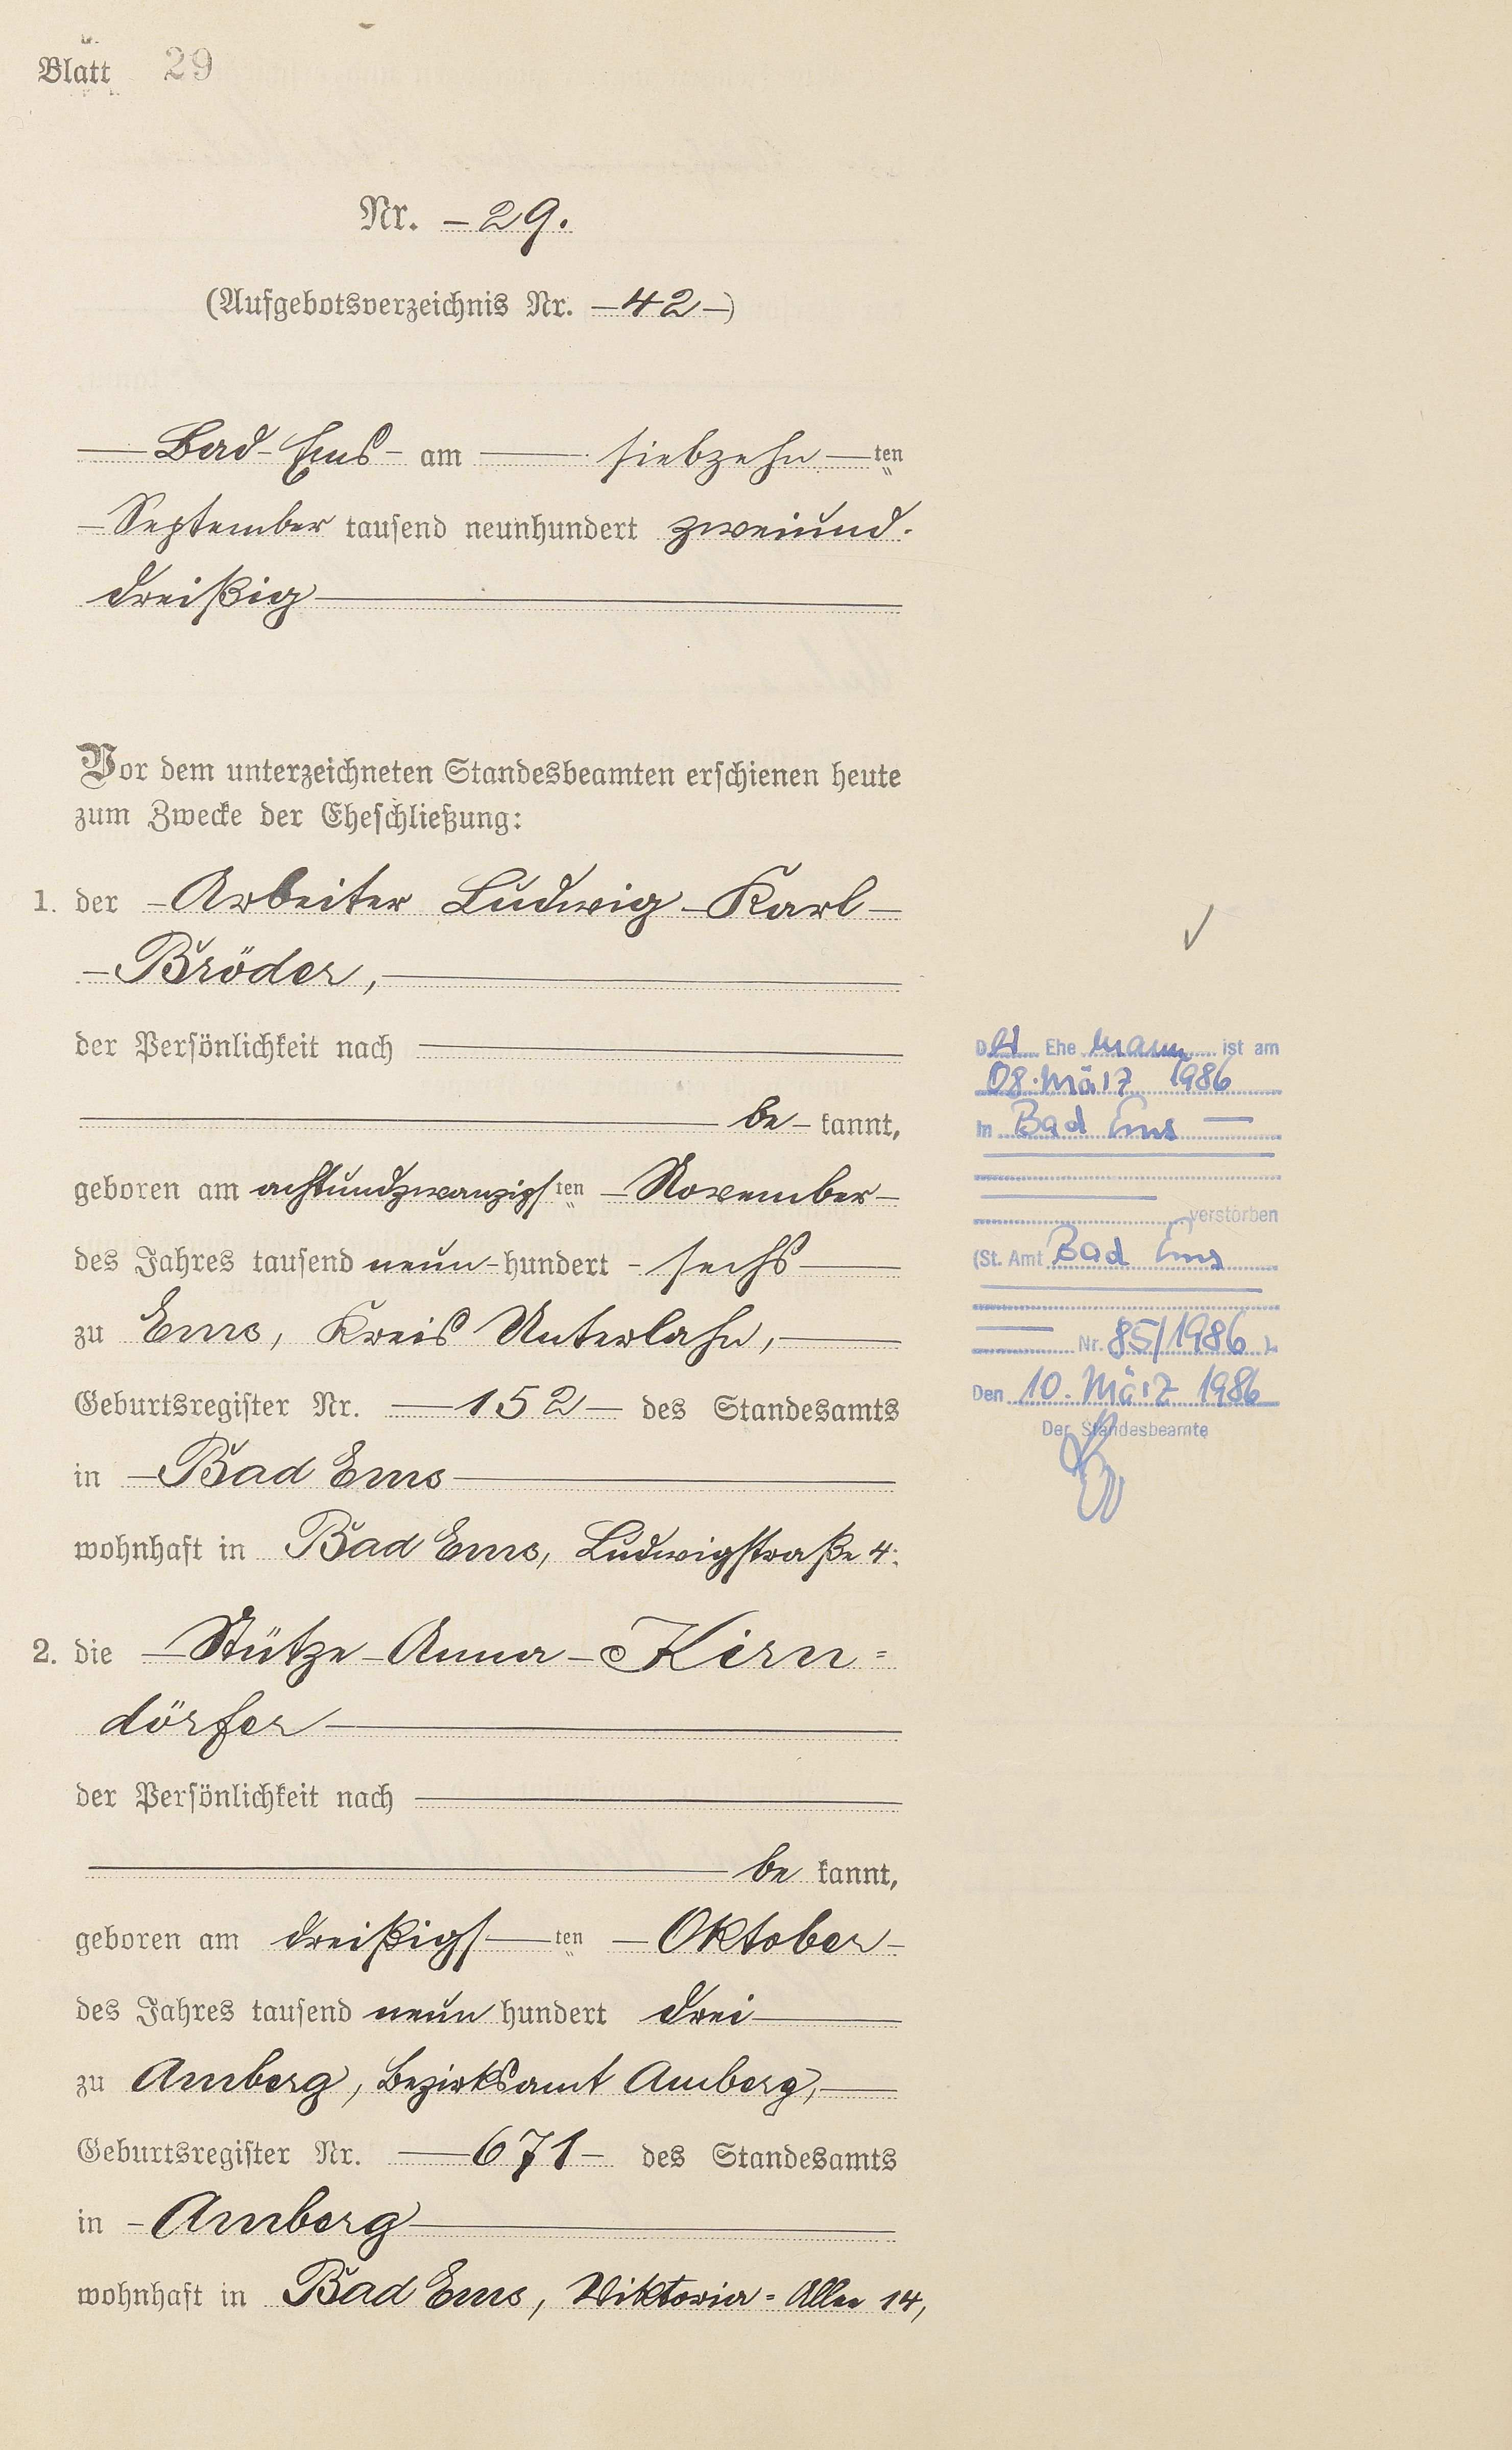 Blatt 29
Nr. – 29.
(Aufgebotsverzeichnis Nr. – 42 –)
Bad Ems – am siebzehn – ten
– September tausend neunhundert zweiund-
dreißig
Vor dem unterzeichneten Standesbeamten erschienen heute
zum Zwecke der Eheschließung:
1. der – Arbeiter Ludwig – Karl –
– Bröder,
der Persönlichkeit nach
be – kannt,
geboren am achtundzwanzigsten – November –
des Jahres tausend neun – hundert – sechs
zu Ems, Kreis Unterlahn,
Geburtsregister Nr. – 152 – des Standesamts
in – Bad Ems
wohnhaft in Bad Ems, Ludwigstraße 4.
2. die – Stütze – Anna – Kirn=
dörfer
der Persönlichkeit nach
be kannt,
geboren am dreißigsten – Oktober –
des Jahres tausend neun hundert drei
zu Amberg, Bezirksamt Amberg,
Geburtsregister Nr. – 671 – des Standesamts
in – Amberg
wohnhaft in Bad Ems, Viktoria = Allee 14,
Der Ehe mann ist am
08. März 1986
in Bad Ems
verstorben
(St. Amt Bad Ems
Nr. 85/1986 ).
Den 10. März 1986
Der Standesbeamte